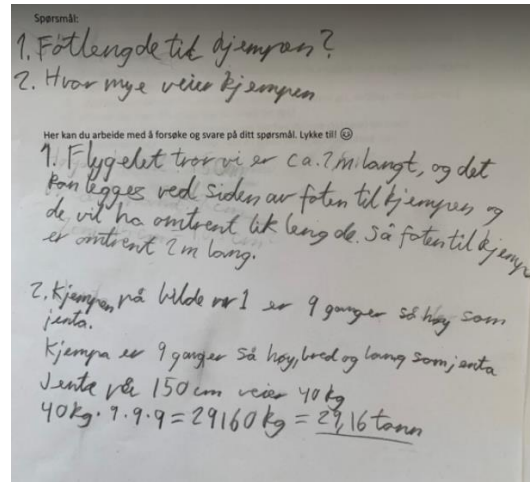 Spørsmål:
1. Fotlengde til kjempen?
2. Hvor mye veier kjempen
Her kan du arbeide med å forsøke og svare på ditt spørsmål. Lykke til! ☺
1. Flygelet tror vi er ca. 2 m langt, og det
kan legges ved siden av foten til kjempen og
de vil ha omtrent lik lengde. Så foten til kjemp
er omtrent 2m lang.
2. Kjempen på bilde nr 1 er 9 ganger så høy som
jenta.
Kjempa er 9 ganger så høy, bred og lang som jenta
Jenta på 150 cm veier 40 kg
40 kg · 9 · 9 · 9 = 29160 kg = 29,16 tonn